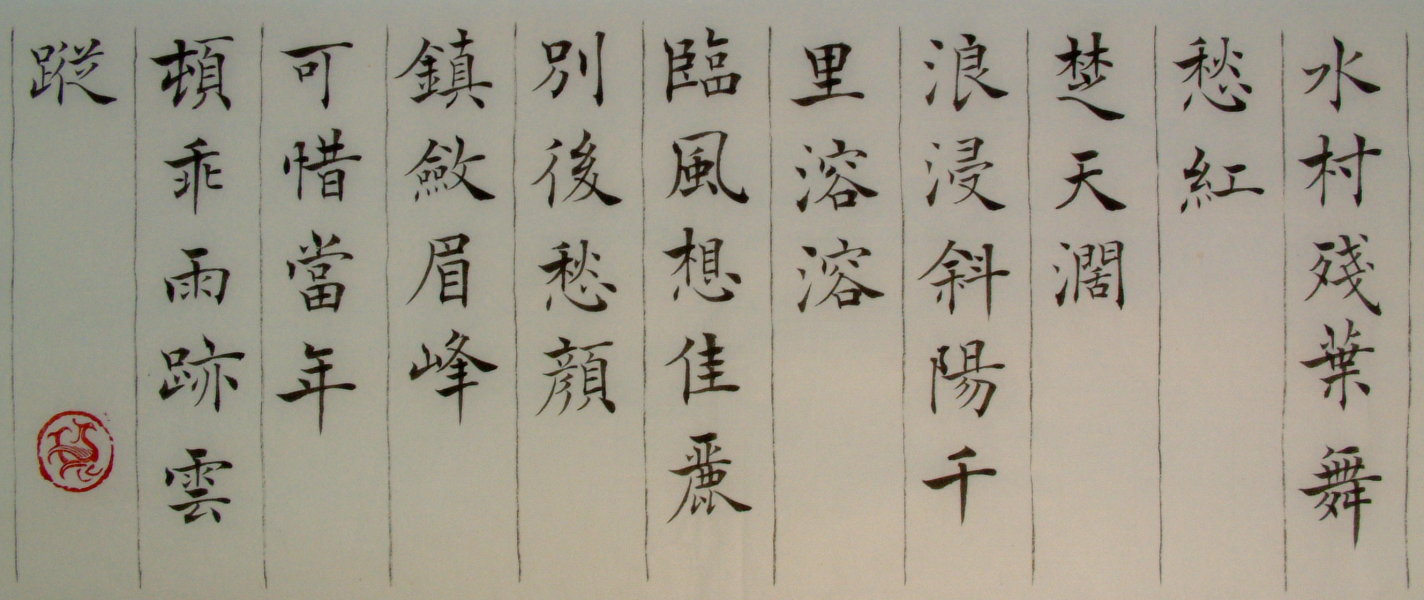 水村殘葉舞
愁紅
楚天濶
浪浸斜陽千
里溶溶
臨風想佳麗
別後愁顔
鎮斂眉峰
可惜當年
頓乖雨跡雲
蹤